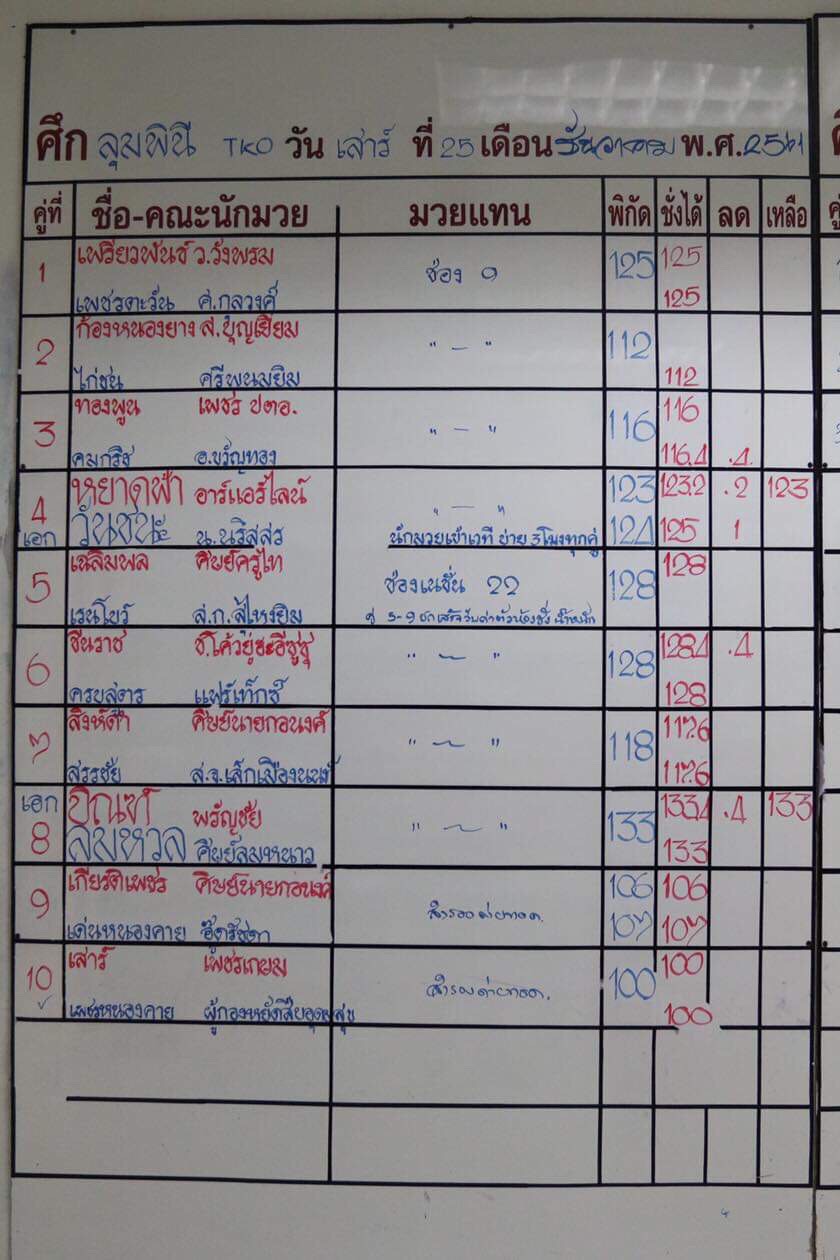 ศึก ลุมพินี TKO วัน เสาร์ ที่ 25 เดือน ธันวาคม พ.ศ.
คู่ที่ ชื่อ-คณะนักมวย มวยแทน พิกัด ชั่งได้ ลด เหลือ
1 เพรียวพันธ์ ว.วังพรม ช่อง 9 125 125
เพชรตะวัน ศ.กลวงค์ 125
2 ก้องหนองยาง ส.บุญเยี่ยม " — " 112
ไก่ชน ศรีพนมยิม 112
3 ทองพูน เพชร ปตอ. " — " 116 116
คมกริช อ.ขวัญทอง 116.4 .4
4 หยาดฟ้า อาร์แอร์ไลน์ " — " 123 123.2 .2 123
เอก วันชนะ น.นริสสร นักมวยเข้าเวที บ่าย 3 โมงทุกคู่ 124 125 1
5 เฉลิมพล ศิษย์ครูไก่ ช่องเนชั่น 22 128 128
เรนโบว์ ส.ก.สู้ไหงยิม
6 ชินราช 128 128.4 .4
ครบสูตร แฟร์เท็กซ์ " — " 128
7 สิงห์ดำ ศิษย์นายกอนงค์ " — " 118 117.6
สรรชัย ส.จ.เล็กเมืองนนท์ 117.6
เอก พรัญชัย " — " 133 133.4 .4 133
8 ลมหวล ศิษย์ลมหนาว 133
9 เกียรติเพชร ศิษย์นายกอนงค์ 106 106
เด่นหนองคาย สำรองถ่ายทอด. 107 107
10 เสาร์ เพชรเกษม สำรองถ่ายทอด. 100 100
เพชรหนองคาย 100